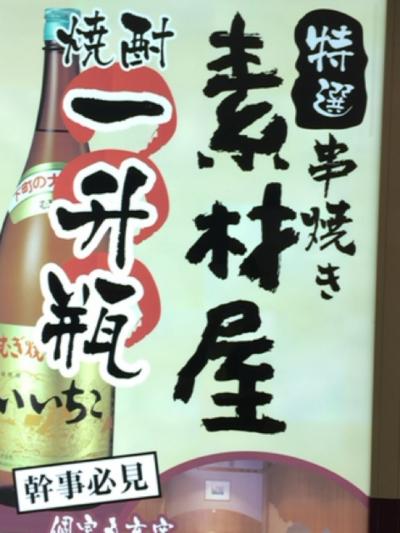 特選
串焼き
素材屋
焼酎
一升瓶
下町の
むぎ焼
いいちこ
幹事必見